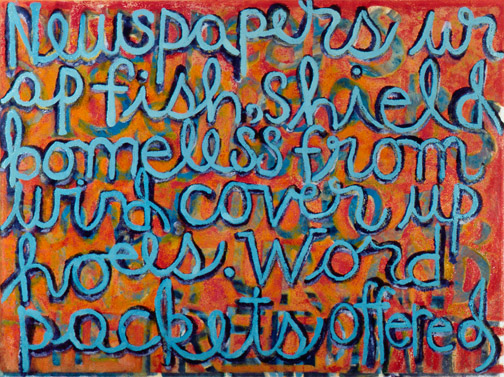 Newspapers wr
ap fish, shield
homeless from
wind cover up
hoels. Word
packets offered